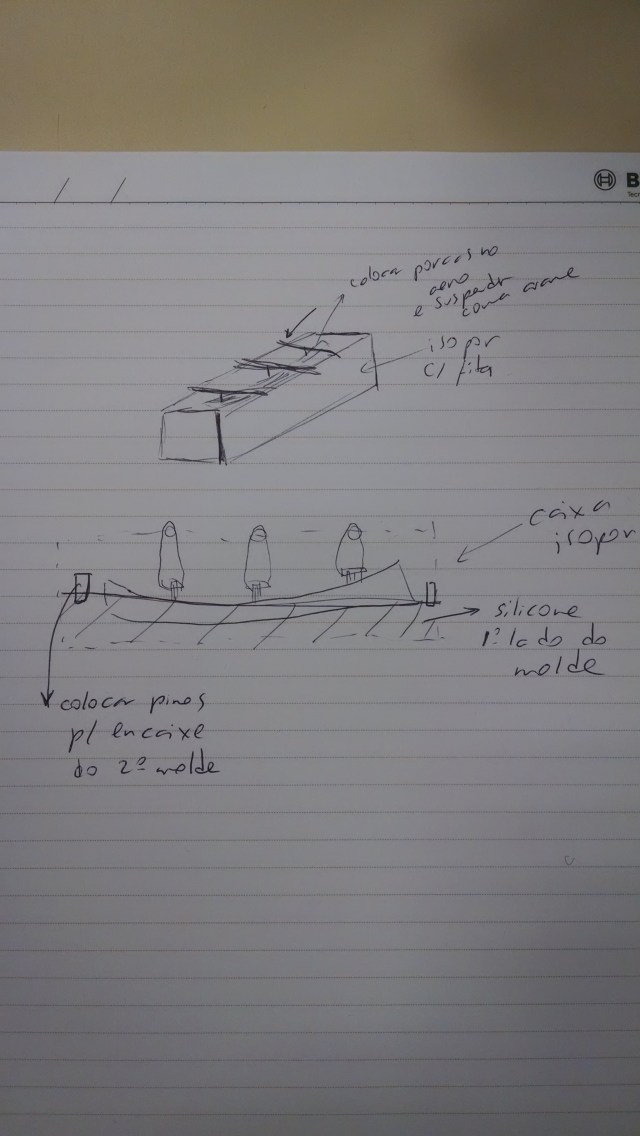 / /
B
Tecn
colocar porcas no
aero
e suspender
com arame
isopor
c/ fita
caixa
isopor
silicone
1º lado do
molde
colocar pinos
p/ encaixe
do 2º molde